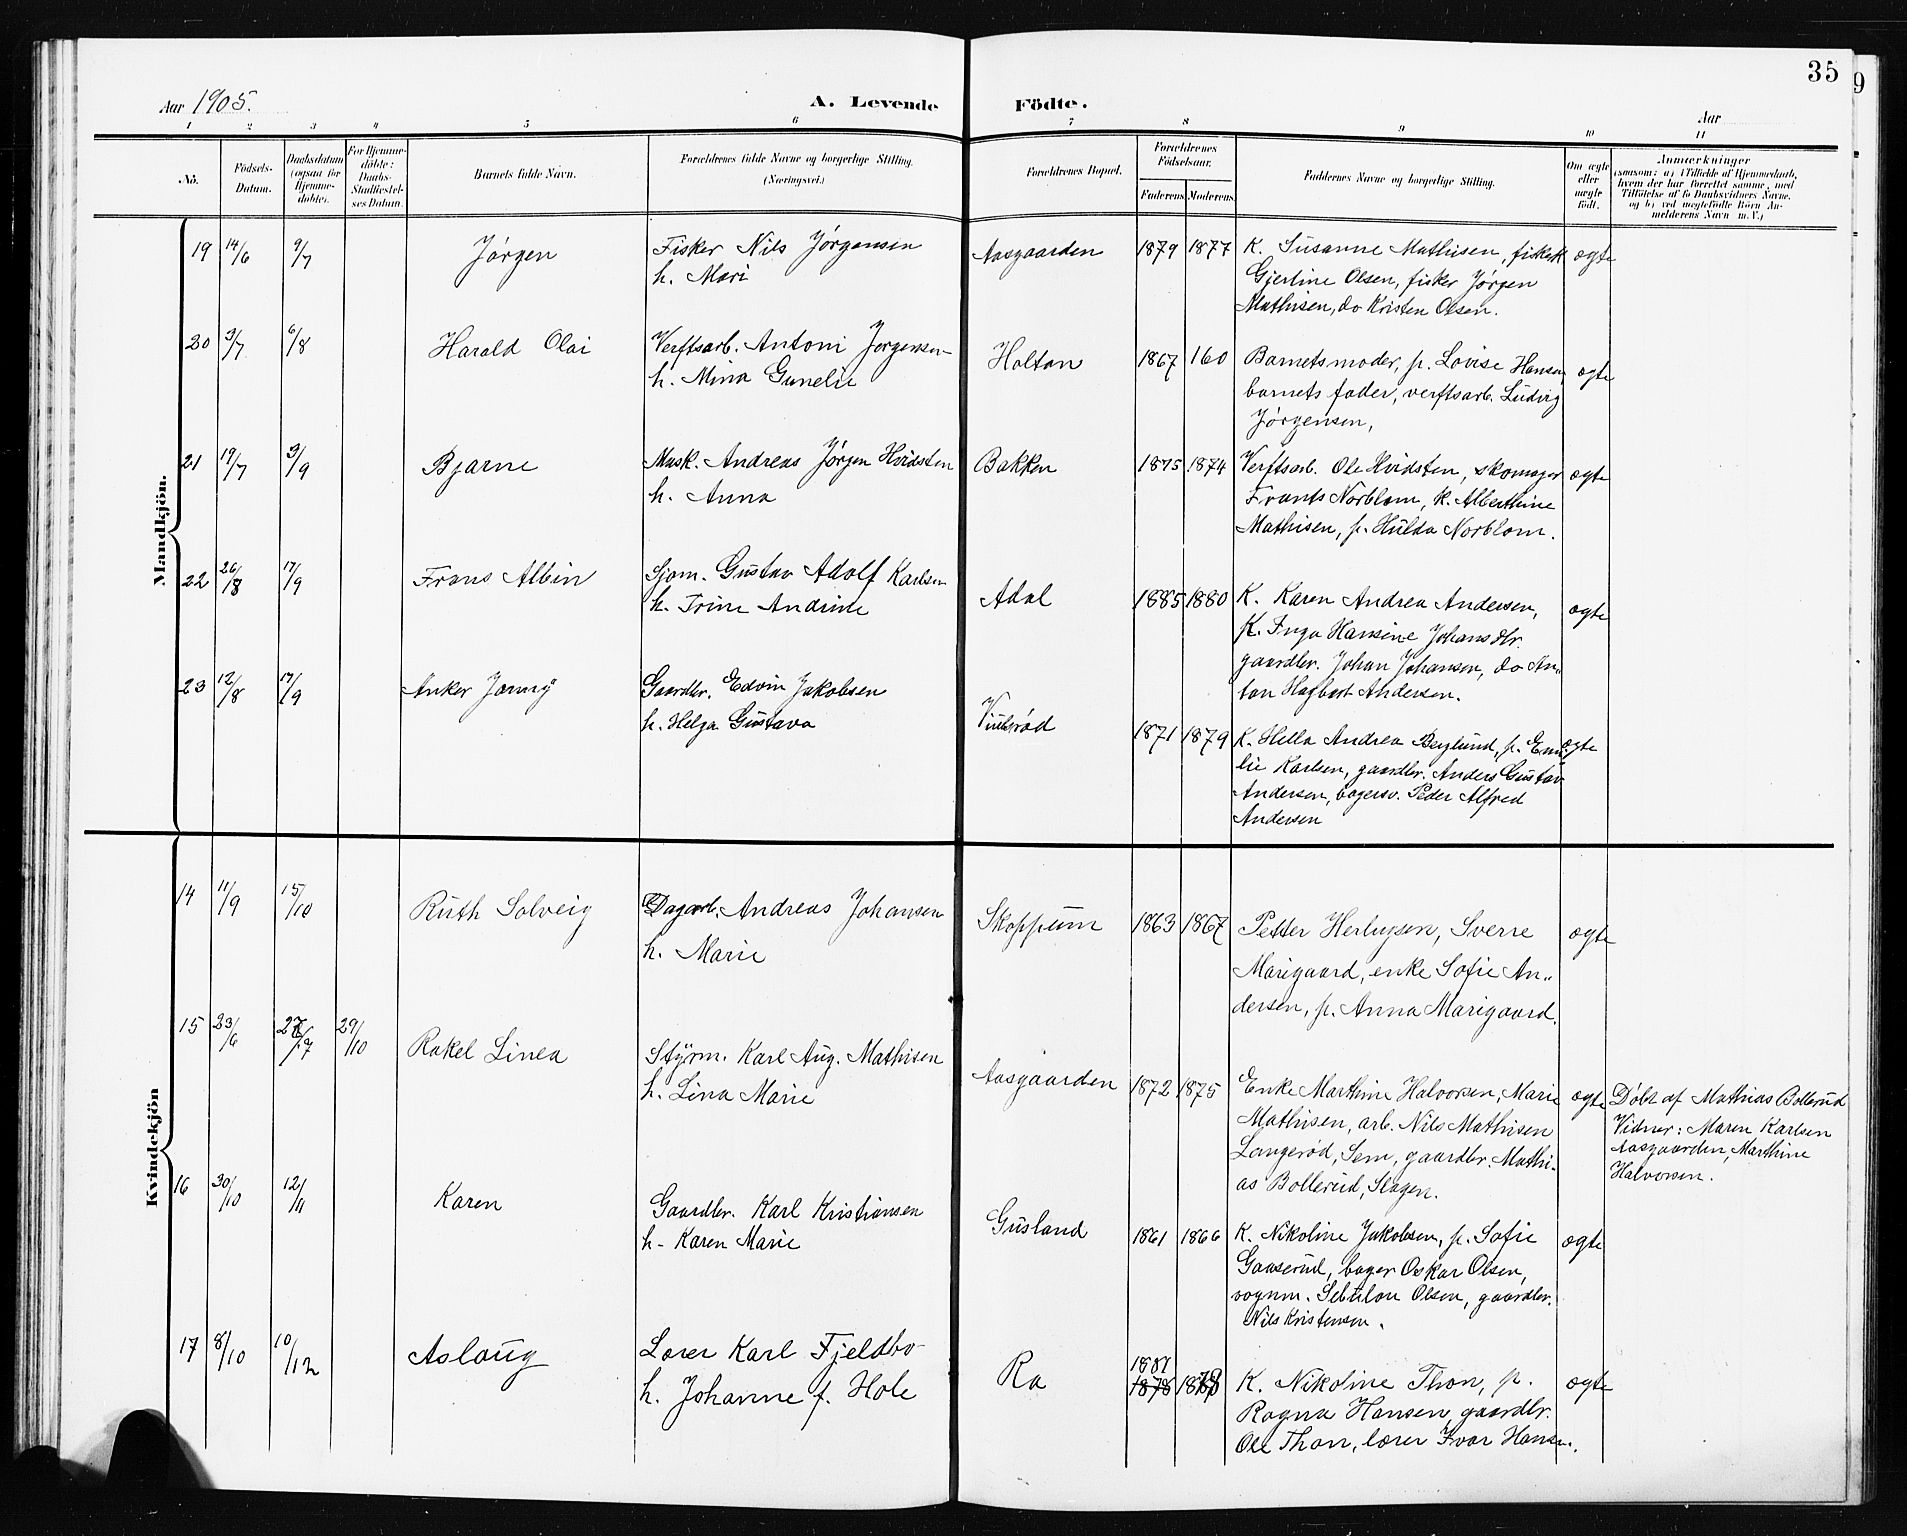 35
Aar 1905.
A. Levende Födte.
Aar
1 2 3 4 5 6 7 8 9 10 11
No.
Födsels-Datum.
Daabsdatum (ogsaa for Hjemme-döbte).
For Hjemme-döbte: Daabs-Stadfæstel-ses Datum.
Barnets fulde Navn.
Forældrenes fulde Navne og borgerlige Stilling. (Næringsvei.)
Forældrenes Bopæl.
Forældrenes Födselsaar.
Faderens Moderens
Faddernes Navne og borgerlige Stilling.
Om ægte eller uægte födt.
Anmærkninger
(saasom: a) i Tilfælde af Hjemmedaab, hvem der har forrettet samme, med Tilföielse af to Daabsvidners Navne, og b) ved uægtefödte Börn An-melderens Navn m. V.)
Mandkjön.
19 14/6 9/7 Jørgen
Fisker Nils Jørgensen
h. Mari
Aasgaarden 1879 1877
K. Susanne Mathisen, fiskerk
Gjertine Olsen, fisker Jørgen
Mathisen, do Kristen Olsen.
ægte
20 3/7 6/8 Harald Olai
Verftsarb. Antoni Jørgensen
h. Mina Gunelie
Holtan 1867 160
Barnets moder, p. Lovise Hansen,
barnets fader, verftsarb. Ludvig
Jørgensen,
ægte
21 19/7 3/9 Bjarne
Mask. Andreas Jørgen Hvidsten
h. Anna
Bakken 1875 1874
Verftsarb. Ole Hvidsten, skomager
Frants Norblom, k. Alberthine
Mathisen, p. Hulda Norblom.
ægte
22 26/8 17/9 Frans Albin
Sjøm. Gustav Adolf Karlsen
h. Trine Andrine
Adal 1885 1880
K. Karen Andrea Andersen,
K. Inga Hansine Johansdtr.
gaardbr. Johan Johansen, do An-
ton Hagbart Andersen.
ægte
23 12/8 17/9 Anker Jonny
Gaardbr. Edvin Jakobsen
h. Helga Gustava
1871 1879
K. Hella Andrea Berglund, p. Emi-
lie Karlsen, gaardbr. Anders Gustav
Andersen, bagersv. Peder Alfred
Andersen
ægte
Kvindekjön
14 11/9 15/10 Ruth Solveig
Dagarb. Andreas Johansen
h. Marie
Skoppum 1863 1867
Petter Herlugsen, Sverre
Marigaard, enke Sofie An-
dersen, p. Anna Marigaard.
ægte
15 23/6 /7 29/10 Rakel Linea
Styrm. Karl Aug. Mathisen
h. Lina Marie
Aasgaarden 1872 1875
Enke Marthine Halvorsen, Marie
Mathisen, arb. Nils Mathisen
Langerød, Sem, gaardbr. Mathi-
as Bollerud, Slagen.
ægte
Døbt af Mathias Bollerud
Vidner: Maren Karlsen
Aasgaarden, Marthine
Halvorsen.
16 30/10 12/11 Karen
Gaardbr. Karl Kristiansen
h. Karen Marie
Gusland 1861 1866
K. Nikoline Jakobsen, p. Sofie
Gaaserud, bager Oskar Olsen,
vognm. Sebulon Olsen, gaardbr.
Nils Kristensen.
ægte
17 8/10 10/12 Aslaug
Lærer Karl Fjeldbo
h. Johanne f. Hole
Ra 1881
1878
K. Nikoline Thon, p.
Ragna Hansen, gaardbr.
Ole Thon, lærer Ivar Hansen.
ægte